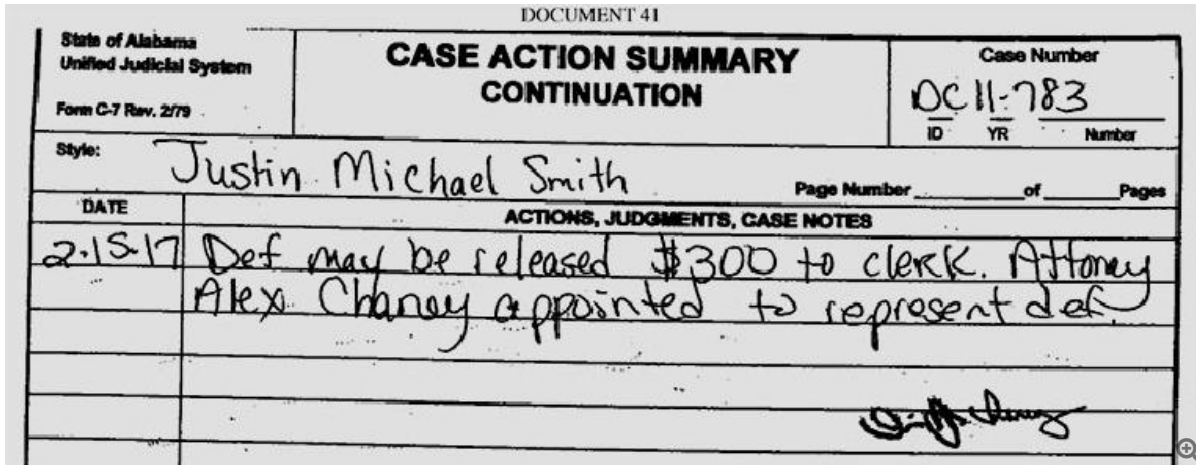 DOCUMENT 41
State of Alabama
Unified Judicial System
Form C-7 Rev. 2/79
CASE ACTION SUMMARY
CONTINUATION
Case Number
DC 11-783
ID YR Number
Style:
Justin Michael Smith
Page Number ______ of ______ Pages
DATE
ACTIONS, JUDGMENTS, CASE NOTES
2-15-17 Def may be released $300 to clerk. Attorney
Alex Chaney appointed to represent def.